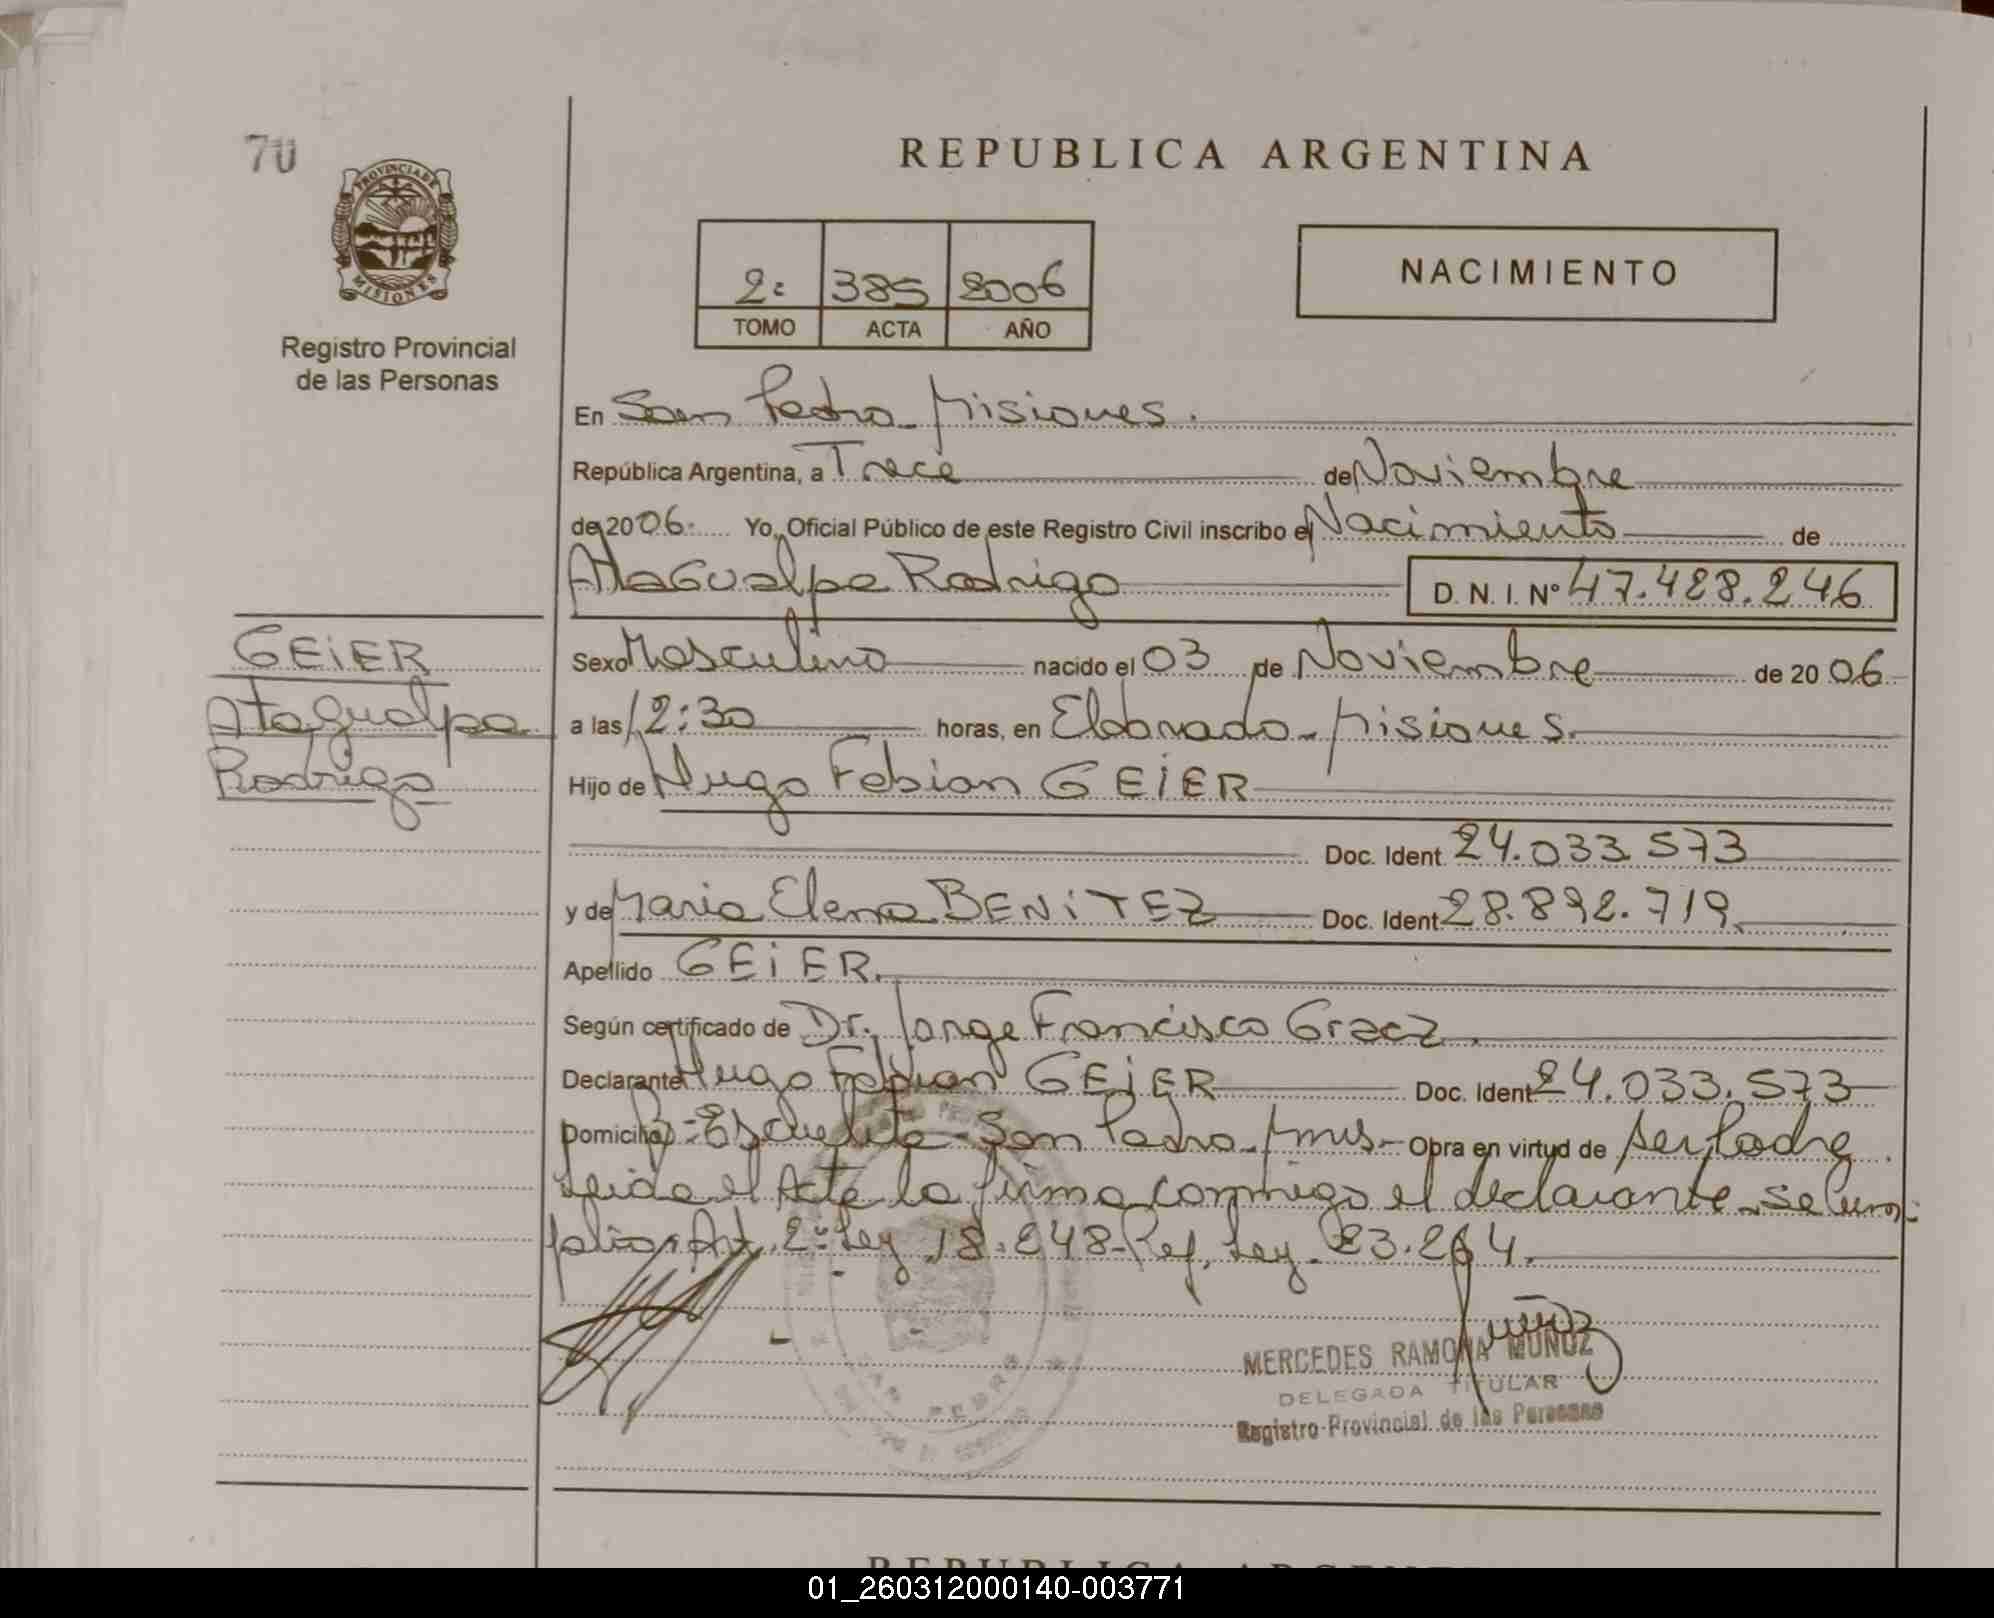 70
PROVINCIA DE
MISIONES
Registro Provincial
de las Personas
REPUBLICA ARGENTINA
2º 385 2006
TOMO ACTA AÑO
NACIMIENTO
En San Pedro - Misiones.
República Argentina, a Trece de Noviembre
de 2006. Yo, Oficial Público de este Registro Civil inscribo el Nacimiento de
Atagualpa Rodrigo D. N. I. Nº 47.428.246
GEiER
Atagualpa
Rodrigo
Sexo Masculino nacido el 03 de Noviembre de 20 06
a las 12:30 horas, en Eldorado - Misiones.
Hijo de Hugo Fabian GEiER
Doc. Ident. 24.033.573
y de Maria Elena BENiTEZ Doc. Ident. 28.892.719
Apellido GEiER.
Según certificado de Dr. Jorge Francisco
Declarante Hugo Fabian GEiER Doc. Ident. 24.033.573
Domicilio San Pedro - Obra en virtud de ser Padre
Leida el Acta la firma conmigo el declarante - se cum-
plio Art. 2º Ley 18.248 - Ref. Ley 23.264.
MERCEDES RAMONA MUÑOZ
DELEGADA TITULAR
Registro Provincial de las Personas
SAN PEDRO
REPUBLICA ARGENTINA
01_260312000140-003771